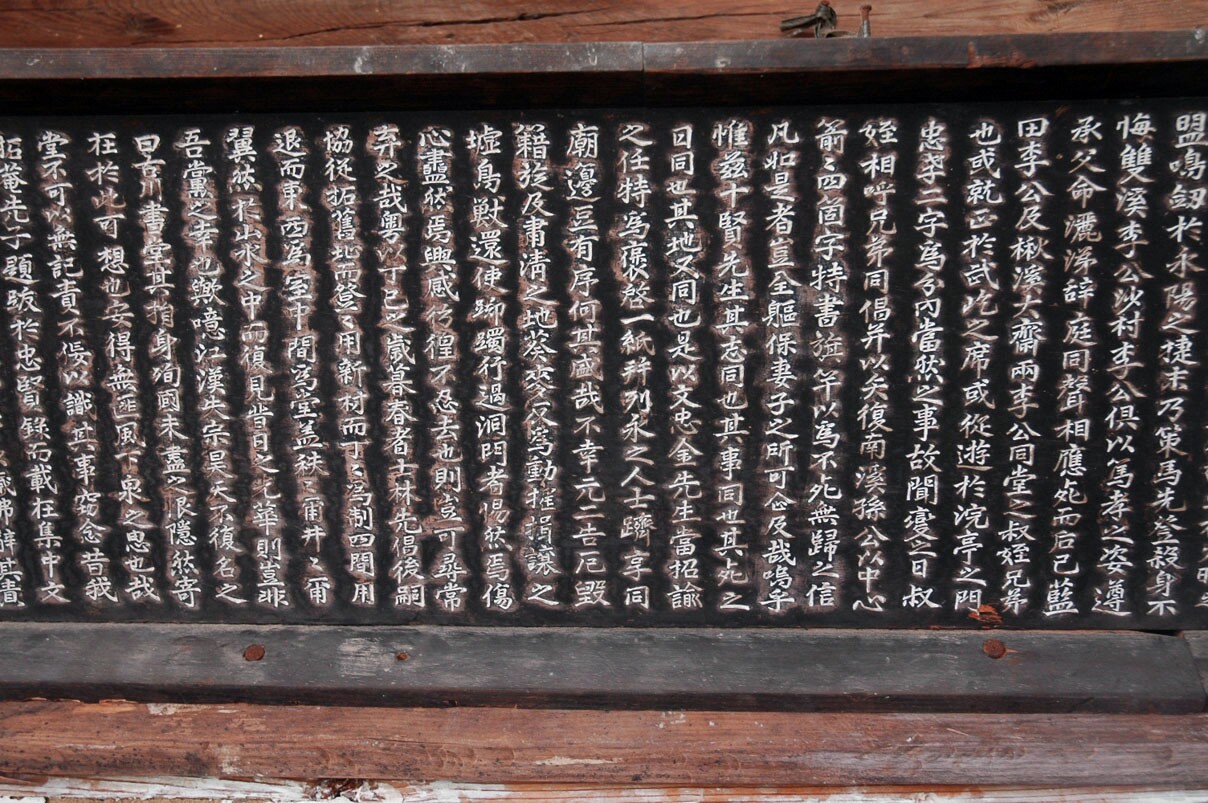 盟鳴劒於永陽之捷末乃策馬先登殺身不
悔雙溪李公沙村李公俱以篤孝之姿遵
承父命灑涕辞庭同聲相應死而后已藍
田李公及楸溪大齋兩李公同堂之叔姪兄弟
也或就正於武屹之席或從遊於浣亭之門
忠孝二字爲分內當然之事故聞變之日叔
姪相呼兄弟同倡并以矢復南溪孫公以中心
箭之四箇字特書旌竿以爲不死無歸之信
凡如是者豈全軀保妻子之所可企及哉嗚乎
惟茲十賢先生其志同也其事同也其死之
日同也其地又同也是以文忠金先生當招諭
之任特爲褒啓一紙幷列永之人士躋享同
廟邊豆有序何其盛哉不幸元二告厄毀
籍旋及肅淸之地葵麥爲動摧損讓之
墟鳥獸還使躑躅行過洞門者惕然焉傷
心盡然焉興感彷徨不忍去也則豈可尋常
弃之哉粤以丁巳之歲暮春者士林先倡後嗣
協從拓舊地而營之用新材而丁丁爲制四間用
退而東西爲室中間爲堂盖秩秩爾井井爾
翼然於山水之中而復見昔日之光華則豈非
吾黨之幸也歟噫江漢失宗昊天不復名之
曰吾川書堂其捐身殉國未盡之恨隱然寄
在於此可想也安得無匪風下泉之思也哉
堂不可以無記責不佞以識其事竊念昔我
拓菴先子題跋於忠賢錄而載在集中文